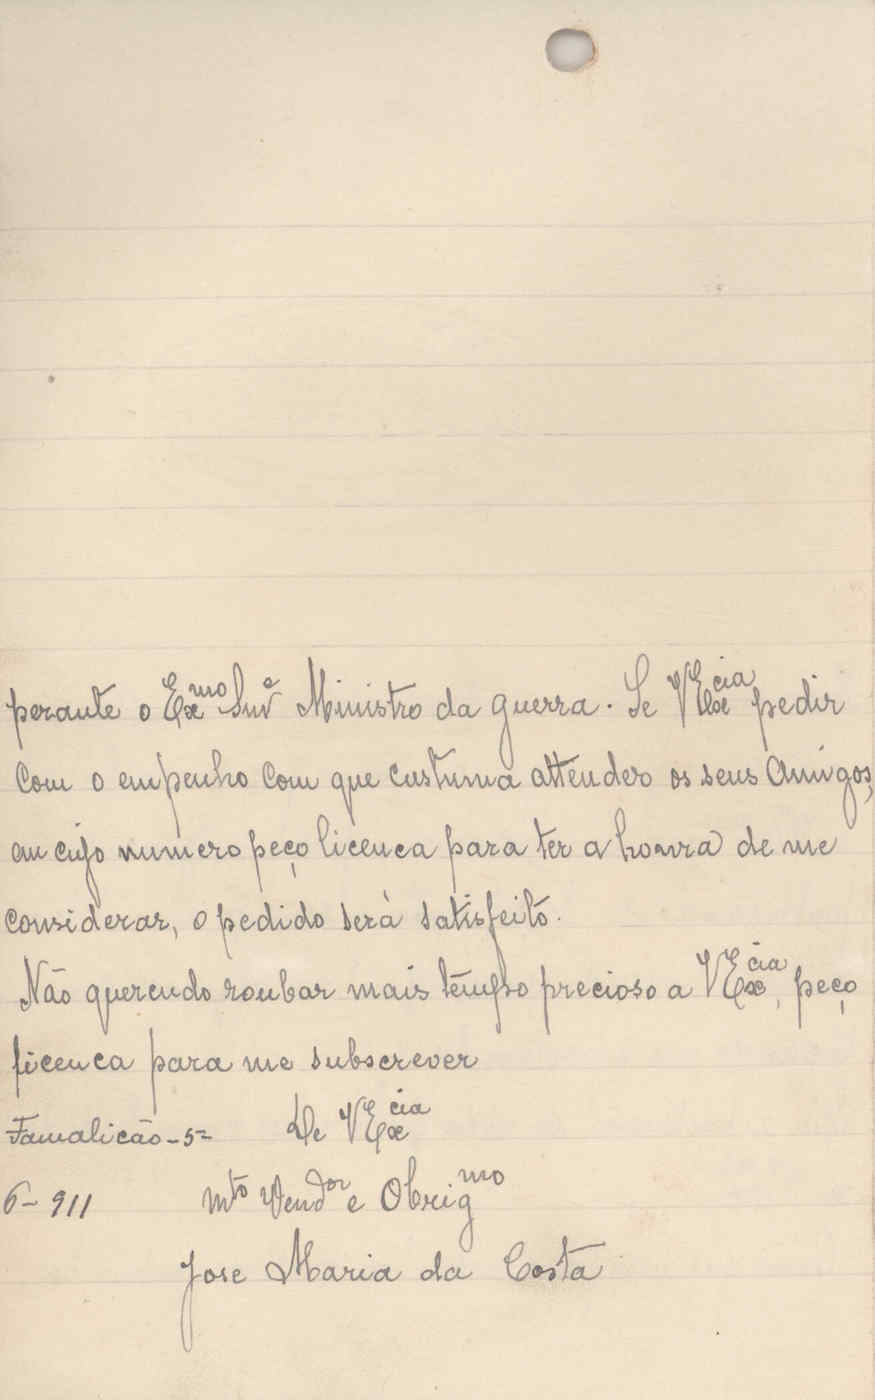 perante o Exmo Snr Ministro da guerra. Se VExcia pedir
com o empenho com que custuma attender os seus Amigos,
em cujo numero peço licenca para ter a honra de me
considerar, o pedido será satisfeito.
Não querendo roubar mais tempo precioso a VExcia, peço
licenca para me subscrever
Famalicão-5- De VExcia
6-911 Mto Vendor e Obrigmo
Jose Maria da Costa